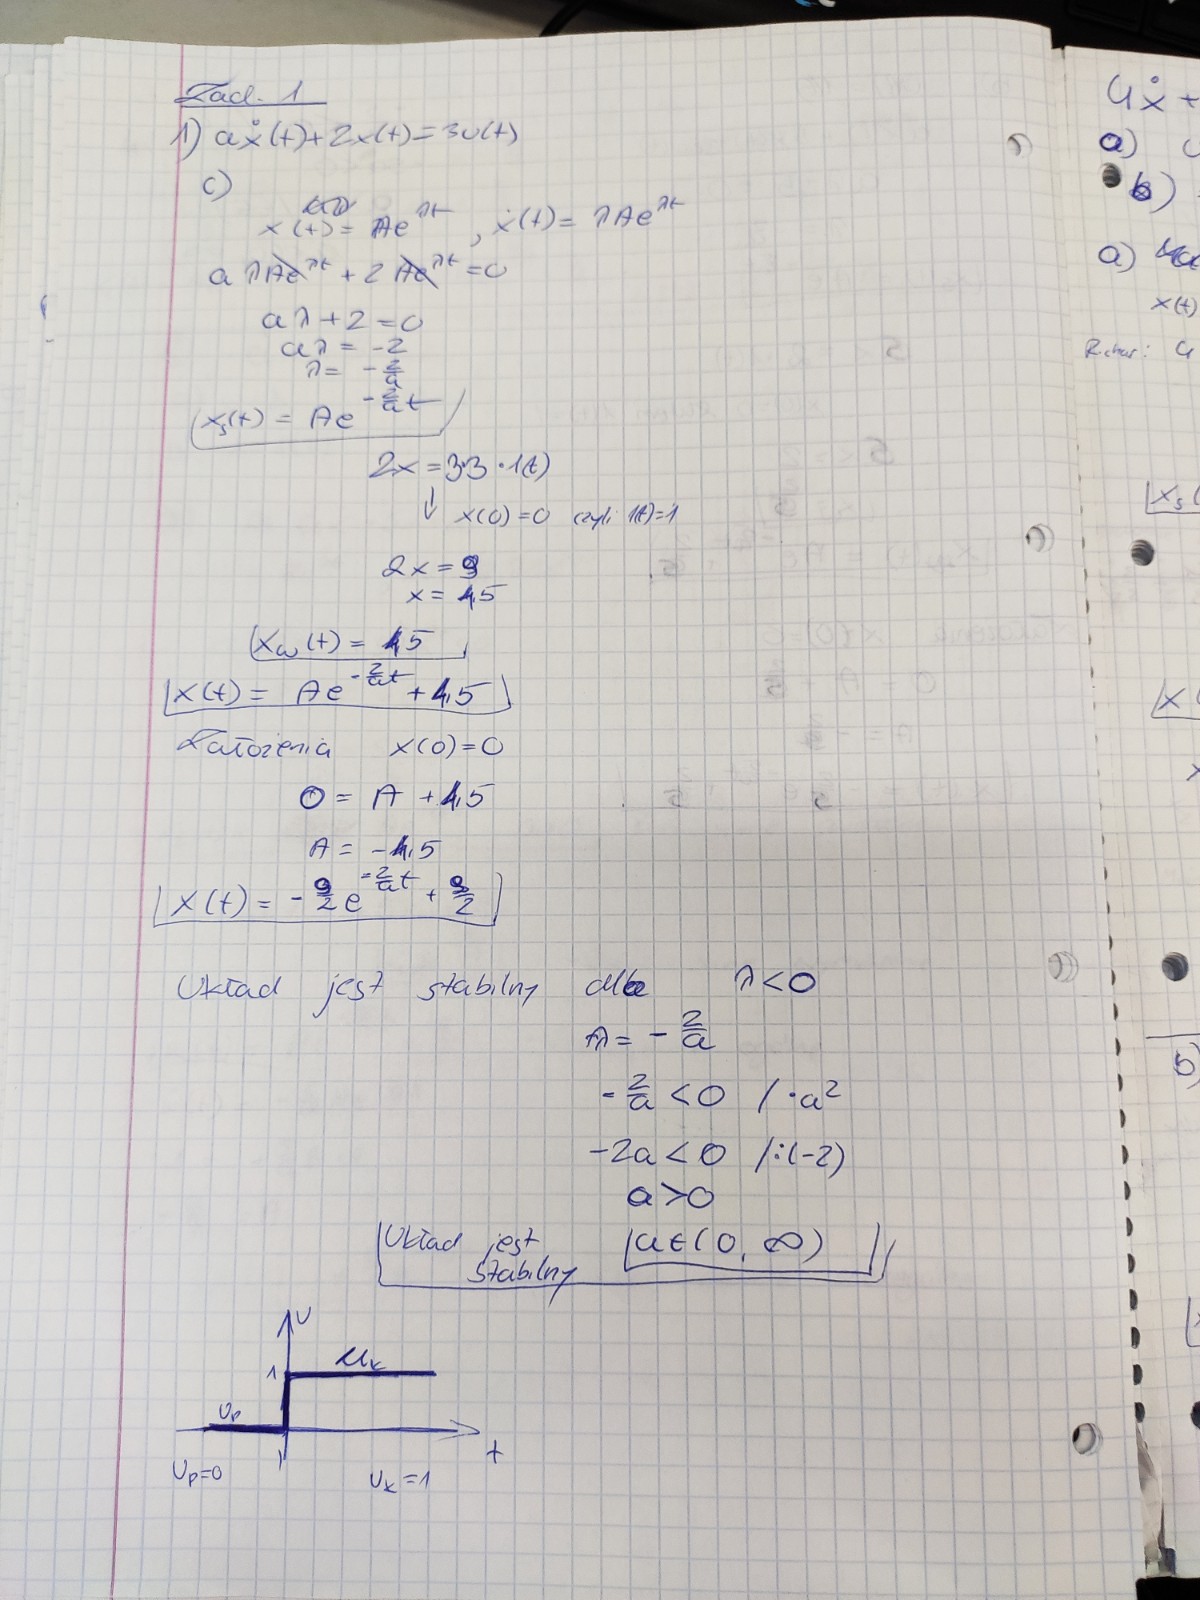 Zad. 1
1) aẋ(t)+2x(t)=3u(t)
c)
x(t)= Ae^λt , ẋ(t)= λAe^λt
a λAe^λt + 2 Ae^λt =0
aλ+2=0
aλ = -2
λ= -2/a
xs(t) = Ae^-2/a t
2x =3·3·1(t)
↓ x(0)=0 (czyli 1(t)=1
2x=9
x= 4,5
xw(t) = 4,5
x(t)= Ae^-2/a t +4,5
Założenia x(0)=0
0= A +4,5
A= -4,5
x(t)= -9/2 e^-2/a t + 9/2
Układ jest stabilny dla λ<0
λ= -2/a
-2/a <0 /·a²
-2a<0 /:(-2)
a>0
Układ jest stabilny a∈(0, ∞)
U
1
Uk
Up
t
Up=0 Uk=1
4ẋ+
a)
b)
a)
x(t)
R.char: 4
xs(
x(
x
b)